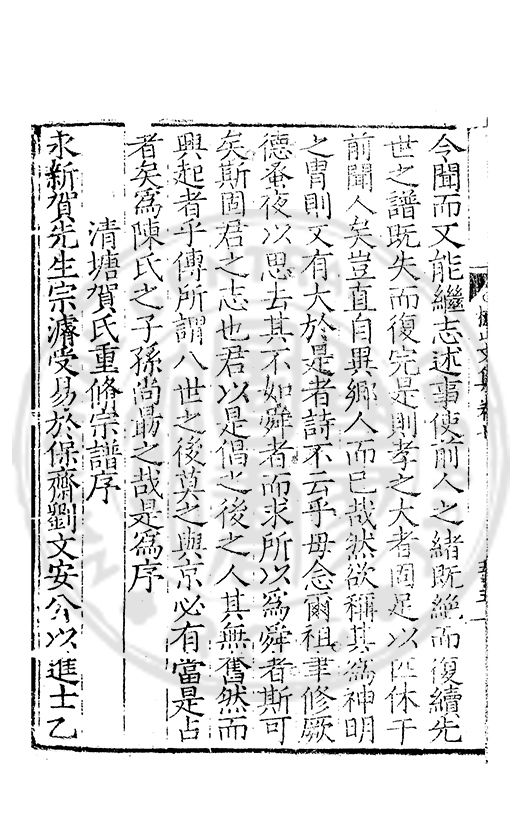 令聞而又能繼志述事使前人之緒既絶而復續先
世之譜既失而復完是則孝之大者固足以匹休于
前聞人矣豈直自異鄉人而已哉然欲稱其為神明
之胄則又有大於是者詩不云乎毋念爾祖聿修厥
德蚤夜以思去其不如舜者而求所以為舜者斯可
矣斯固君之志也君以是倡之後之人其無奮然而
興起者乎傳所謂八世之後莫之與京必有當是占
者矣為陳氏之子孫尚勗之哉是為序
清塘賀氏重修宗譜序
永新賀先生宗濬受易於保齋劉文安公以進士乙